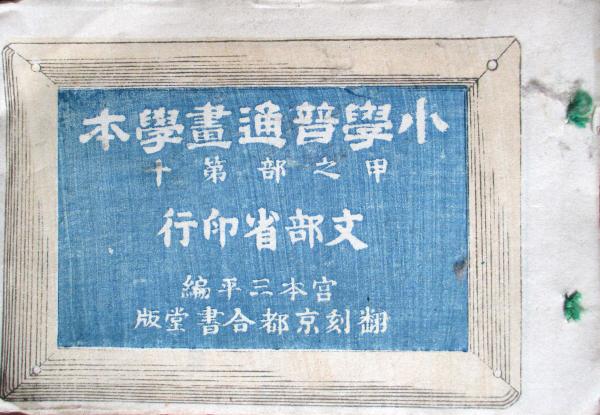 小學普通畫學本
甲之部第十
文部省印行
宮本三平編
翻刻京都合書堂版